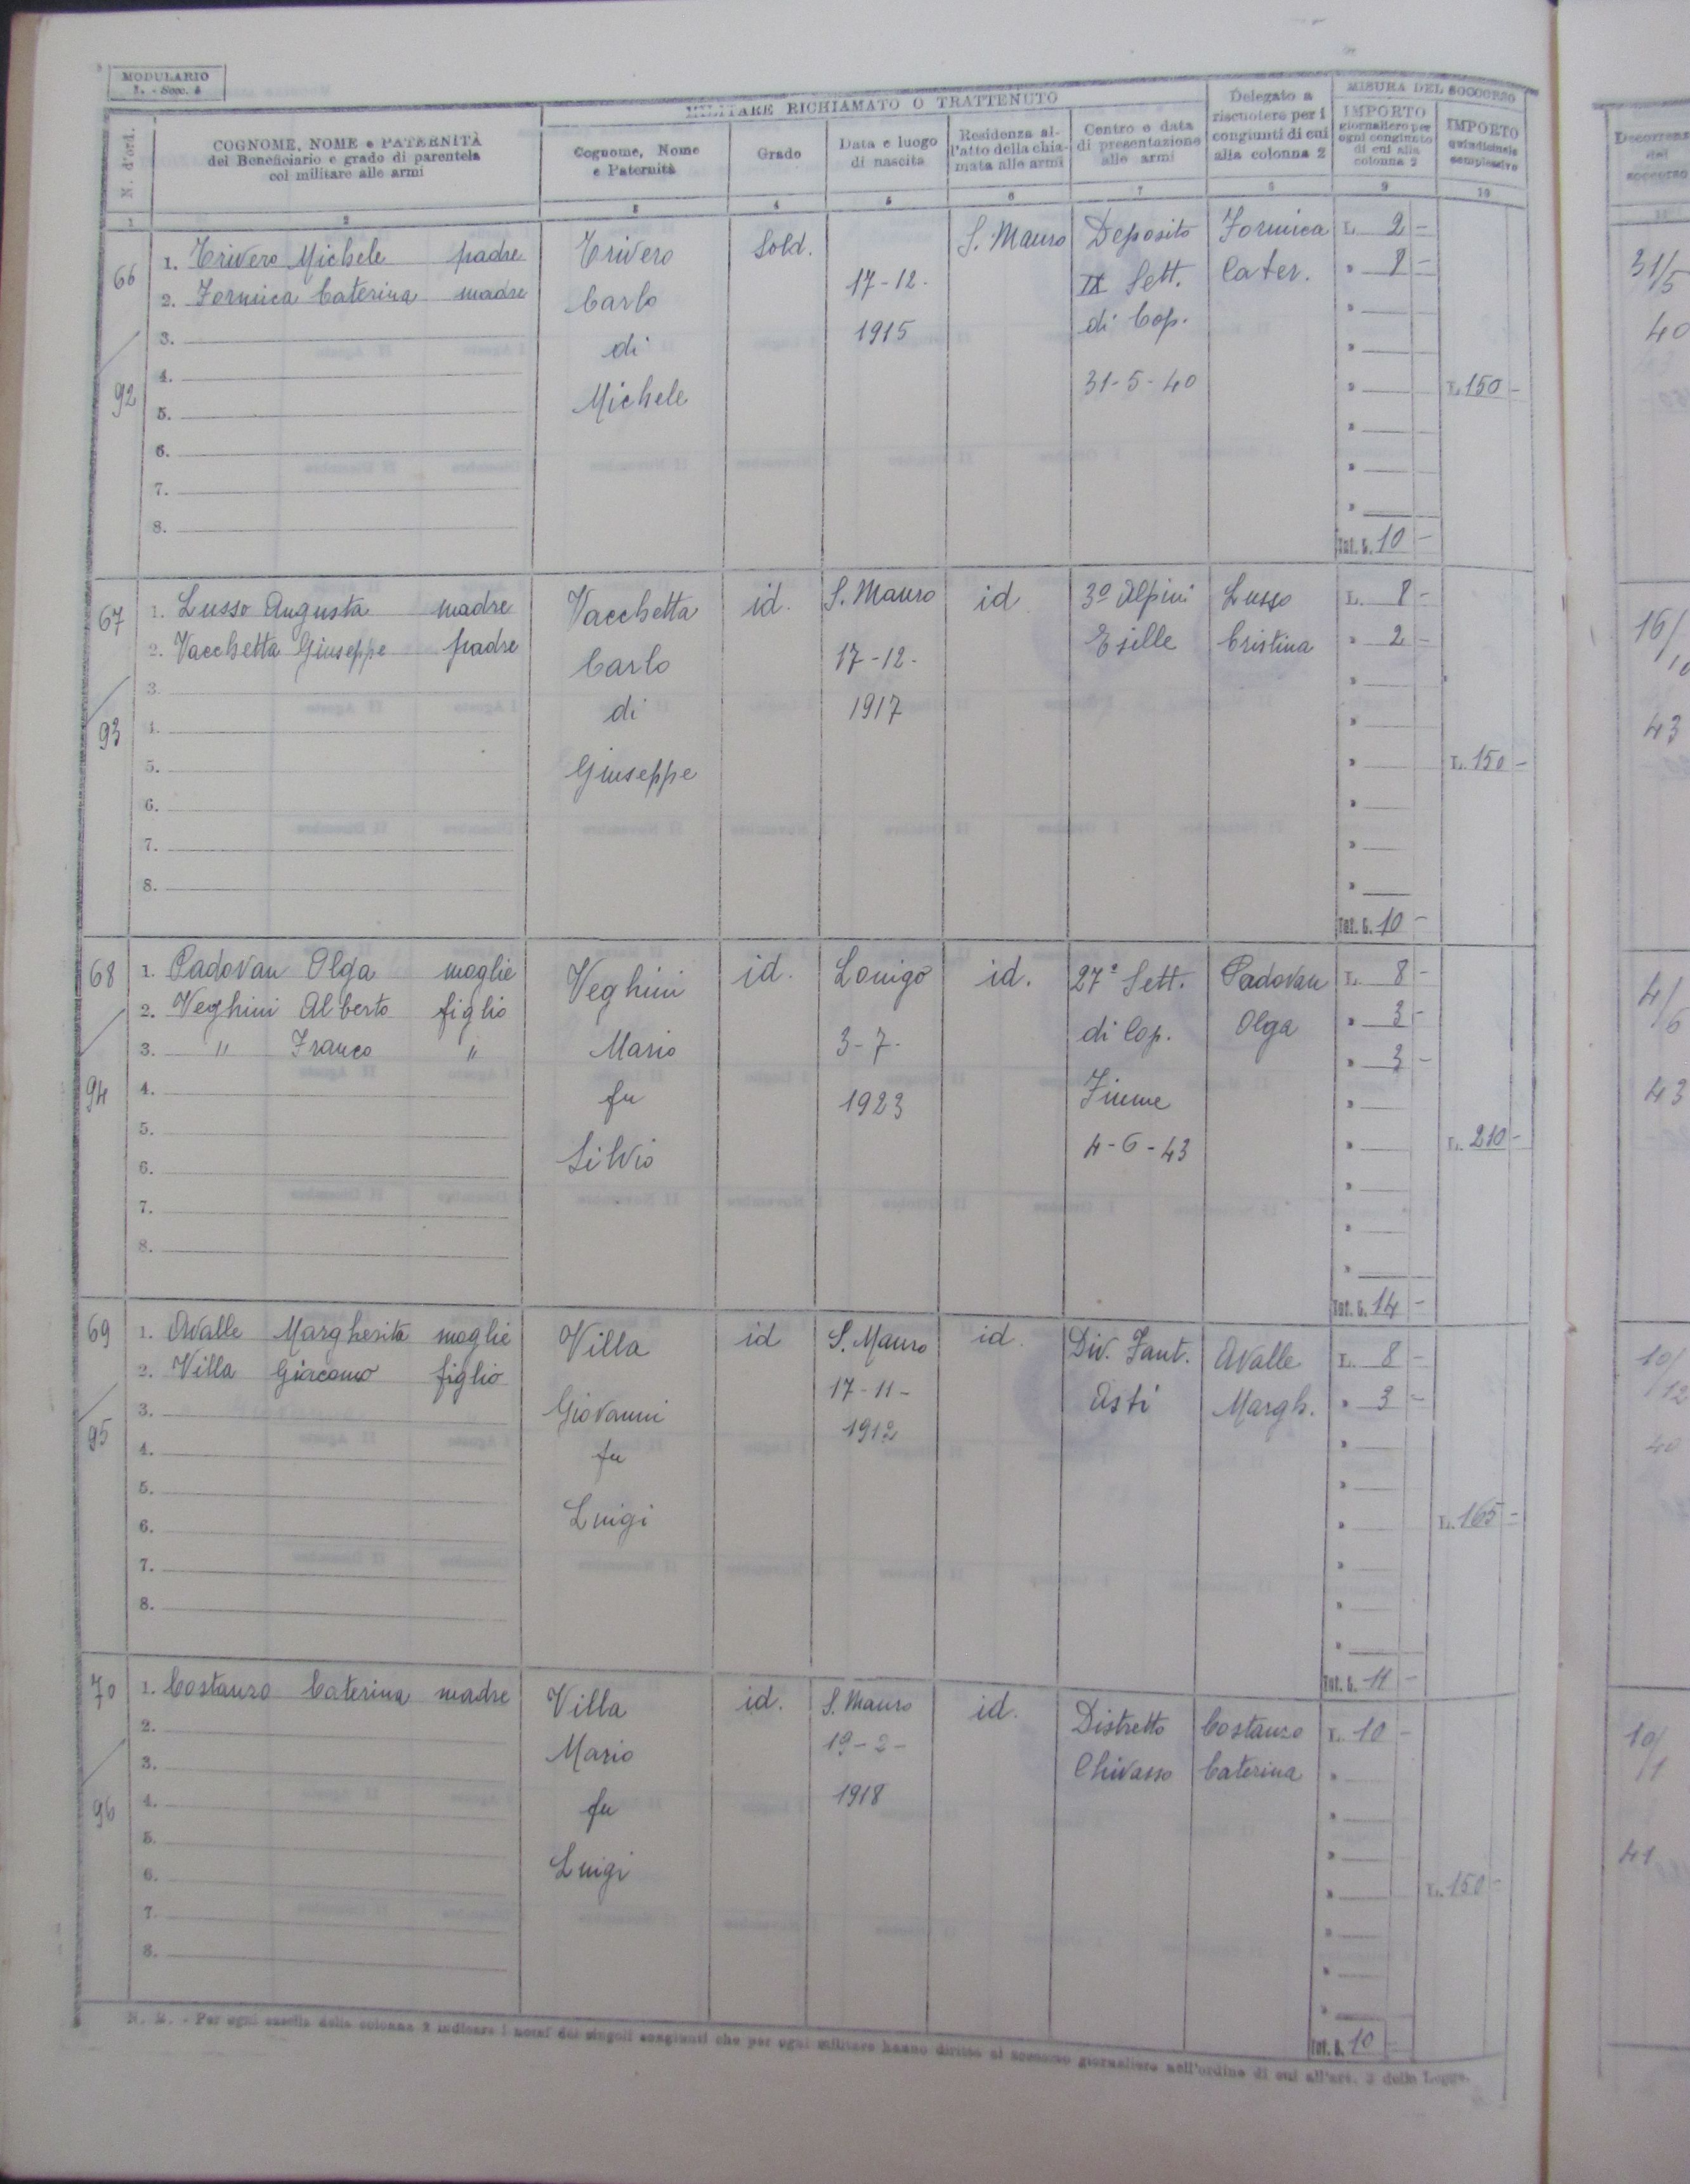 MODULARIO
I. - Socc. 4
N. d'ord.
COGNOME, NOME e PATERNITÀ
del Beneficiario e grado di parentela
col militare alle armi
MILITARE RICHIAMATO O TRATTENUTO
Cognome, Nome
e Paternità
Grado
Data e luogo
di nascita
Residenza al-
l'atto della chia-
mata alle armi
Centro e data
di presentazione
alle armi
Delegato a
riscuotere per i
congiunti di cui
alla colonna 2
MISURA DEL SOCCORSO
IMPORTO
giornaliero per
ogni congiunto
di cui alla
colonna 2
IMPORTO
quindicinale
complessivo
Decorrenza
del
soccorso
1 2 3 4 5 6 7 8 9 10 11
66
92
1. Trivero Michele padre
2. Formica Caterina madre
3.
4.
5.
6.
7.
8.
Trivero
Carlo
di
Michele
Sold.
17-12-
1915
S. Mauro
Deposito
IX Sett.
di Cop.
31-5-40
Formica
Cater.
L. 2 -
" 8 -
Tot. G. 10 -
L. 150 -
31/5
40
67
93
1. Lusso Augusta madre
2. Vacchetta Giuseppe padre
3.
4.
5.
6.
7.
8.
Vacchetta
Carlo
di
Giuseppe
id.
S. Mauro
17-12-
1917
id.
3° Alpini
Exille
Lusso
Cristina
L. 8 -
" 2 -
Tot. G. 10 -
L. 150 -
16/10
43
68
94
1. Padovan Olga moglie
2. Veghini Alberto figlio
3. " Franco "
4.
5.
6.
7.
8.
Veghini
Mario
fu
Silvio
id.
Lonigo
3-7-
1923
id.
27° Sett.
di Cop.
Fiume
4-6-43
Padovan
Olga
L. 8 -
" 3 -
" 3 -
Tot. G. 14 -
L. 210 -
4/6
43
69
95
1. Avalle Margherita moglie
2. Villa Giacomo figlio
3.
4.
5.
6.
7.
8.
Villa
Giovanni
fu
Luigi
id
S. Mauro
17-11-
1912
id.
Div. Fant.
Asti
Avalle
Margh.
L. 8 -
" 3 -
Tot. G. 11 -
L. 165 -
10/12
40
70
96
1. Costanzo Caterina madre
2.
3.
4.
5.
6.
7.
8.
Villa
Mario
fu
Luigi
id.
S. Mauro
19-2-
1918
id.
Distretto
Chivasso
Costanzo
Caterina
L. 10 -
Tot. G. 10 -
L. 150 -
10/1
41
N. B. - Per ogni casella della colonna 2 indicare i nomi dei singoli congiunti che per ogni militare hanno diritto al soccorso giornaliero nell'ordine di cui all'art. 3 della Legge.